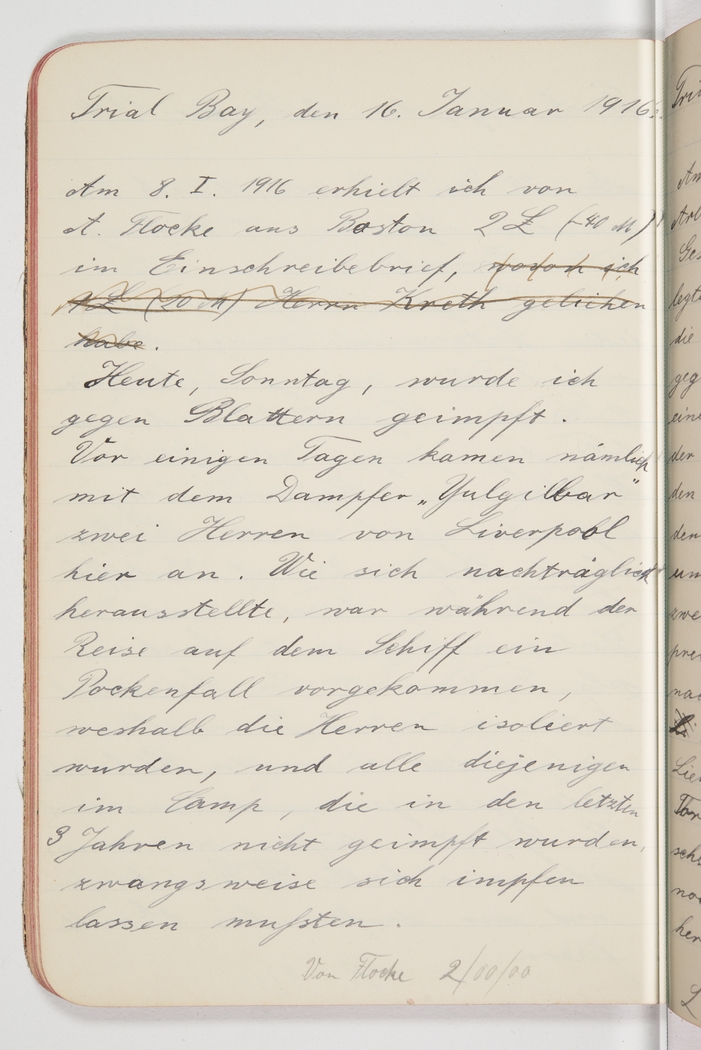 Trial Bay, den 16. Januar 1916.
Am 8. I. 1916 erhielt ich von
A. Flocke aus Boston 2 £ (-40 M)
im Einschreibebrief, wovon ich
1 £ (20 M) Herrn Kreth geliehen
habe.
Heute, Sonntag, wurde ich
gegen Blattern geimpft.
Vor einigen Tagen kamen nämlich
mit dem Dampfer „Yulgilbar"
zwei Herren von Liverpool
hier an. Wie sich nachträglich
herausstellte, war während der
Reise auf dem Schiff ein
Pockenfall vorgekommen,
weshalb die Herren isoliert
wurden, und alle diejenigen
im Camp, die in den letzten
3 Jahren nicht geimpft wurden,
zwangsweise sich impfen
lassen mußten.
Von Flocke 2/00/00